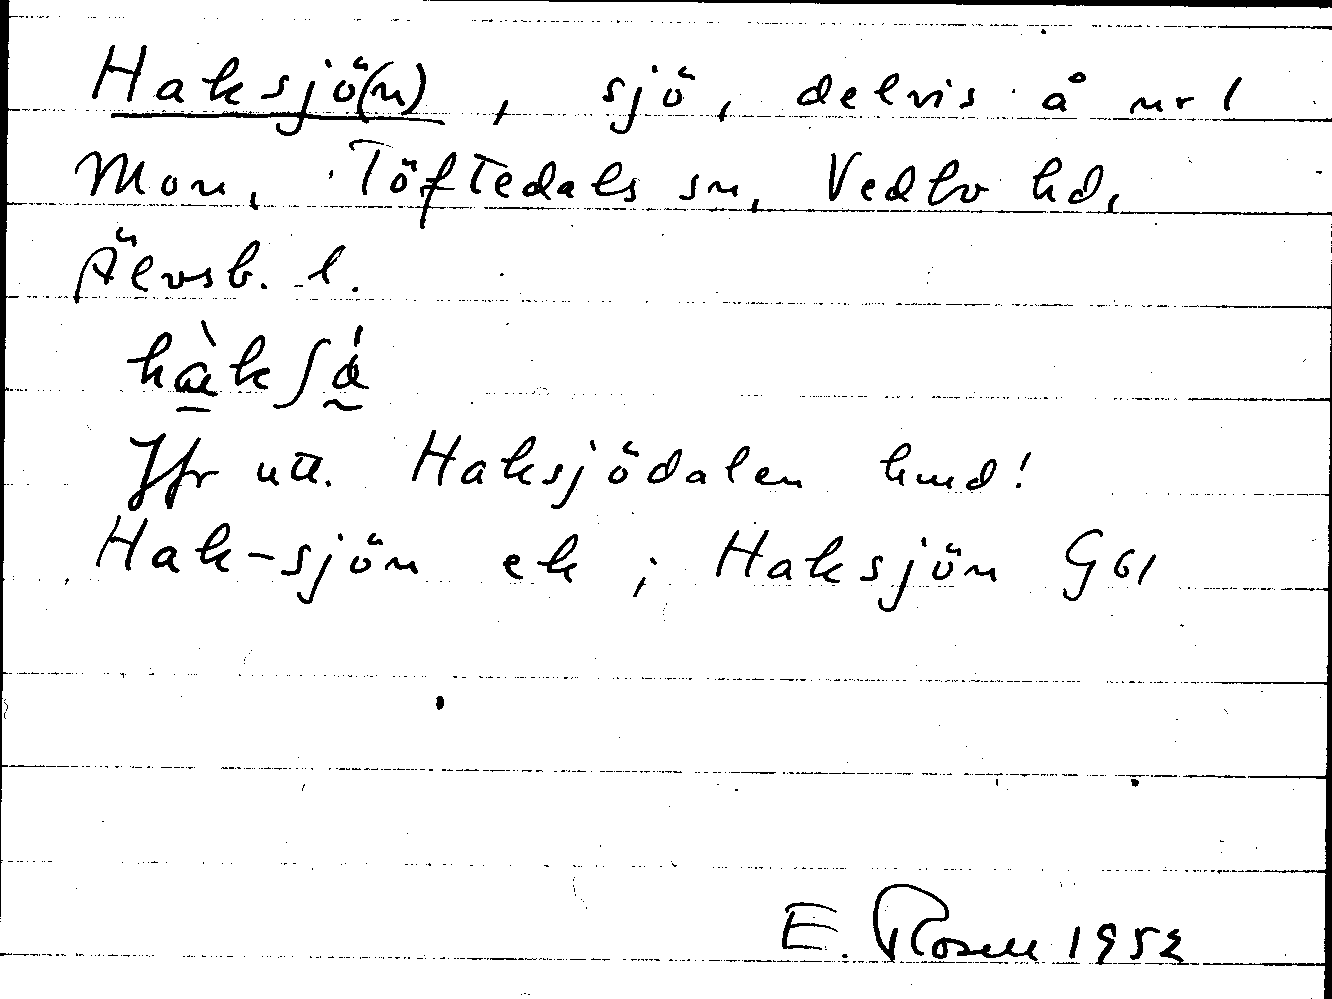 Haksjö(n), sjö, delvis å nr 1
Mon, Töftedals sn, Vedbo hd,
Älvsb. l.
Jfr utt. Haksjödalen hmd!
Hak-sjön ek; Haksjön G61
E. Rosell 1952